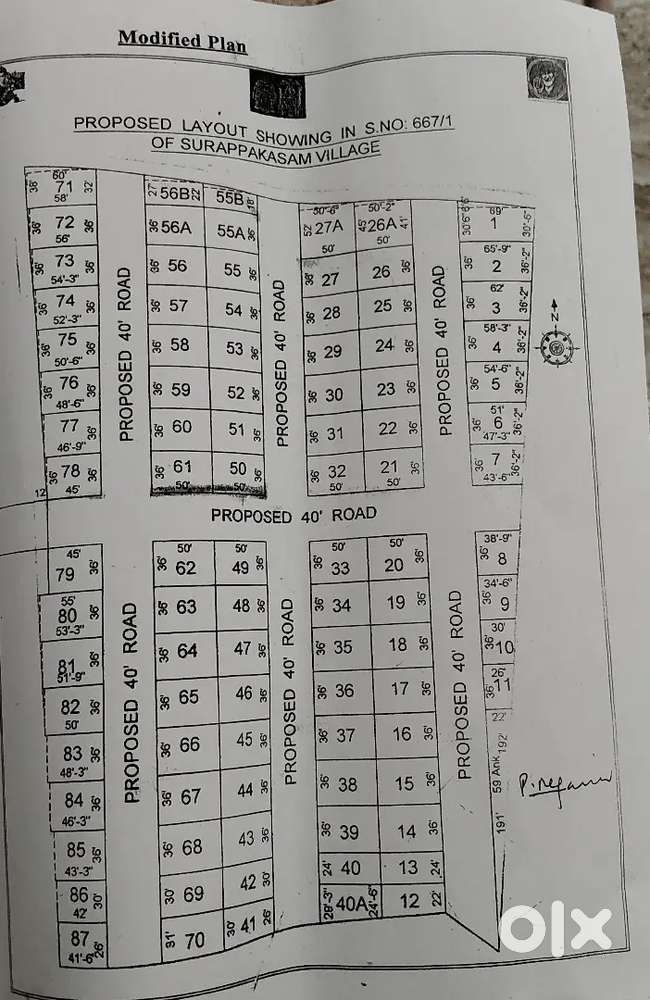 Modified Plan
PROPOSED LAYOUT SHOWING IN S.NO: 667/1
OF SURAPPAKASAM VILLAGE
60'
38' 71 32'
58'
72 36'
56'
36' 73 36'
54'-3"
36' 74 36'
52'-3"
36' 75 36'
50'-6"
36' 76 36'
48'-6"
77 36'
46'-9"
36' 78 36'
45'
12
PROPOSED 40' ROAD
27' 56B 22' 55B 18'
36' 56A 55A 36'
36' 56 55 36'
36' 57 54 36'
36' 58 53 36'
36' 59 52 36'
36' 60 51 36'
36' 61 50 36'
50' 50'
PROPOSED 40' ROAD
50'-6" 50'-2"
52' 27A 45' 26A 41'
50' 50'
36' 27 26 36'
36' 28 25 36'
36' 29 24 36'
36' 30 23 36'
36' 31 22 36'
36' 32 21 36'
50' 50'
PROPOSED 40' ROAD
69'
30'6" 6'6" 1 30'-6"
65'-9"
36' 2 36'-2"
62'
36' 3 36'-2"
58'-3"
36' 4 36'-2"
54'-6"
36' 5 36'-2"
51'
36' 6 36'-2"
47'-3"
36' 7 36'-2"
43'-6"
N
PROPOSED 40' ROAD
45'
79 36'
55'
80 36'
53'-3"
81 36'
51'-9"
82 36'
50'
83 36'
48'-3"
84 36'
46'-3"
85 36'
43'-3"
86 30'
42'
87 26'
41'-6"
PROPOSED 40' ROAD
50' 50'
36' 62 49 36'
36' 63 48 36'
36' 64 47 36'
36' 65 46 36'
36' 66 45 36'
36' 67 44 36'
36' 68 43 36'
30' 69 42 30'
31' 70 30' 41 26'
PROPOSED 40' ROAD
50' 50'
36' 33 20 36'
36' 34 19 36'
36' 35 18 36'
36' 36 17 36'
36' 37 16 36'
36' 38 15 36'
36' 39 14 36'
24' 40 13 24'
29'-3" 40A 24'-6" 12 22'
PROPOSED 40' ROAD
38'-9"
36' 8
34'-6"
36' 9
30'
36' 10
26'
36' 11
22'
192
59 Ank
191'
olx